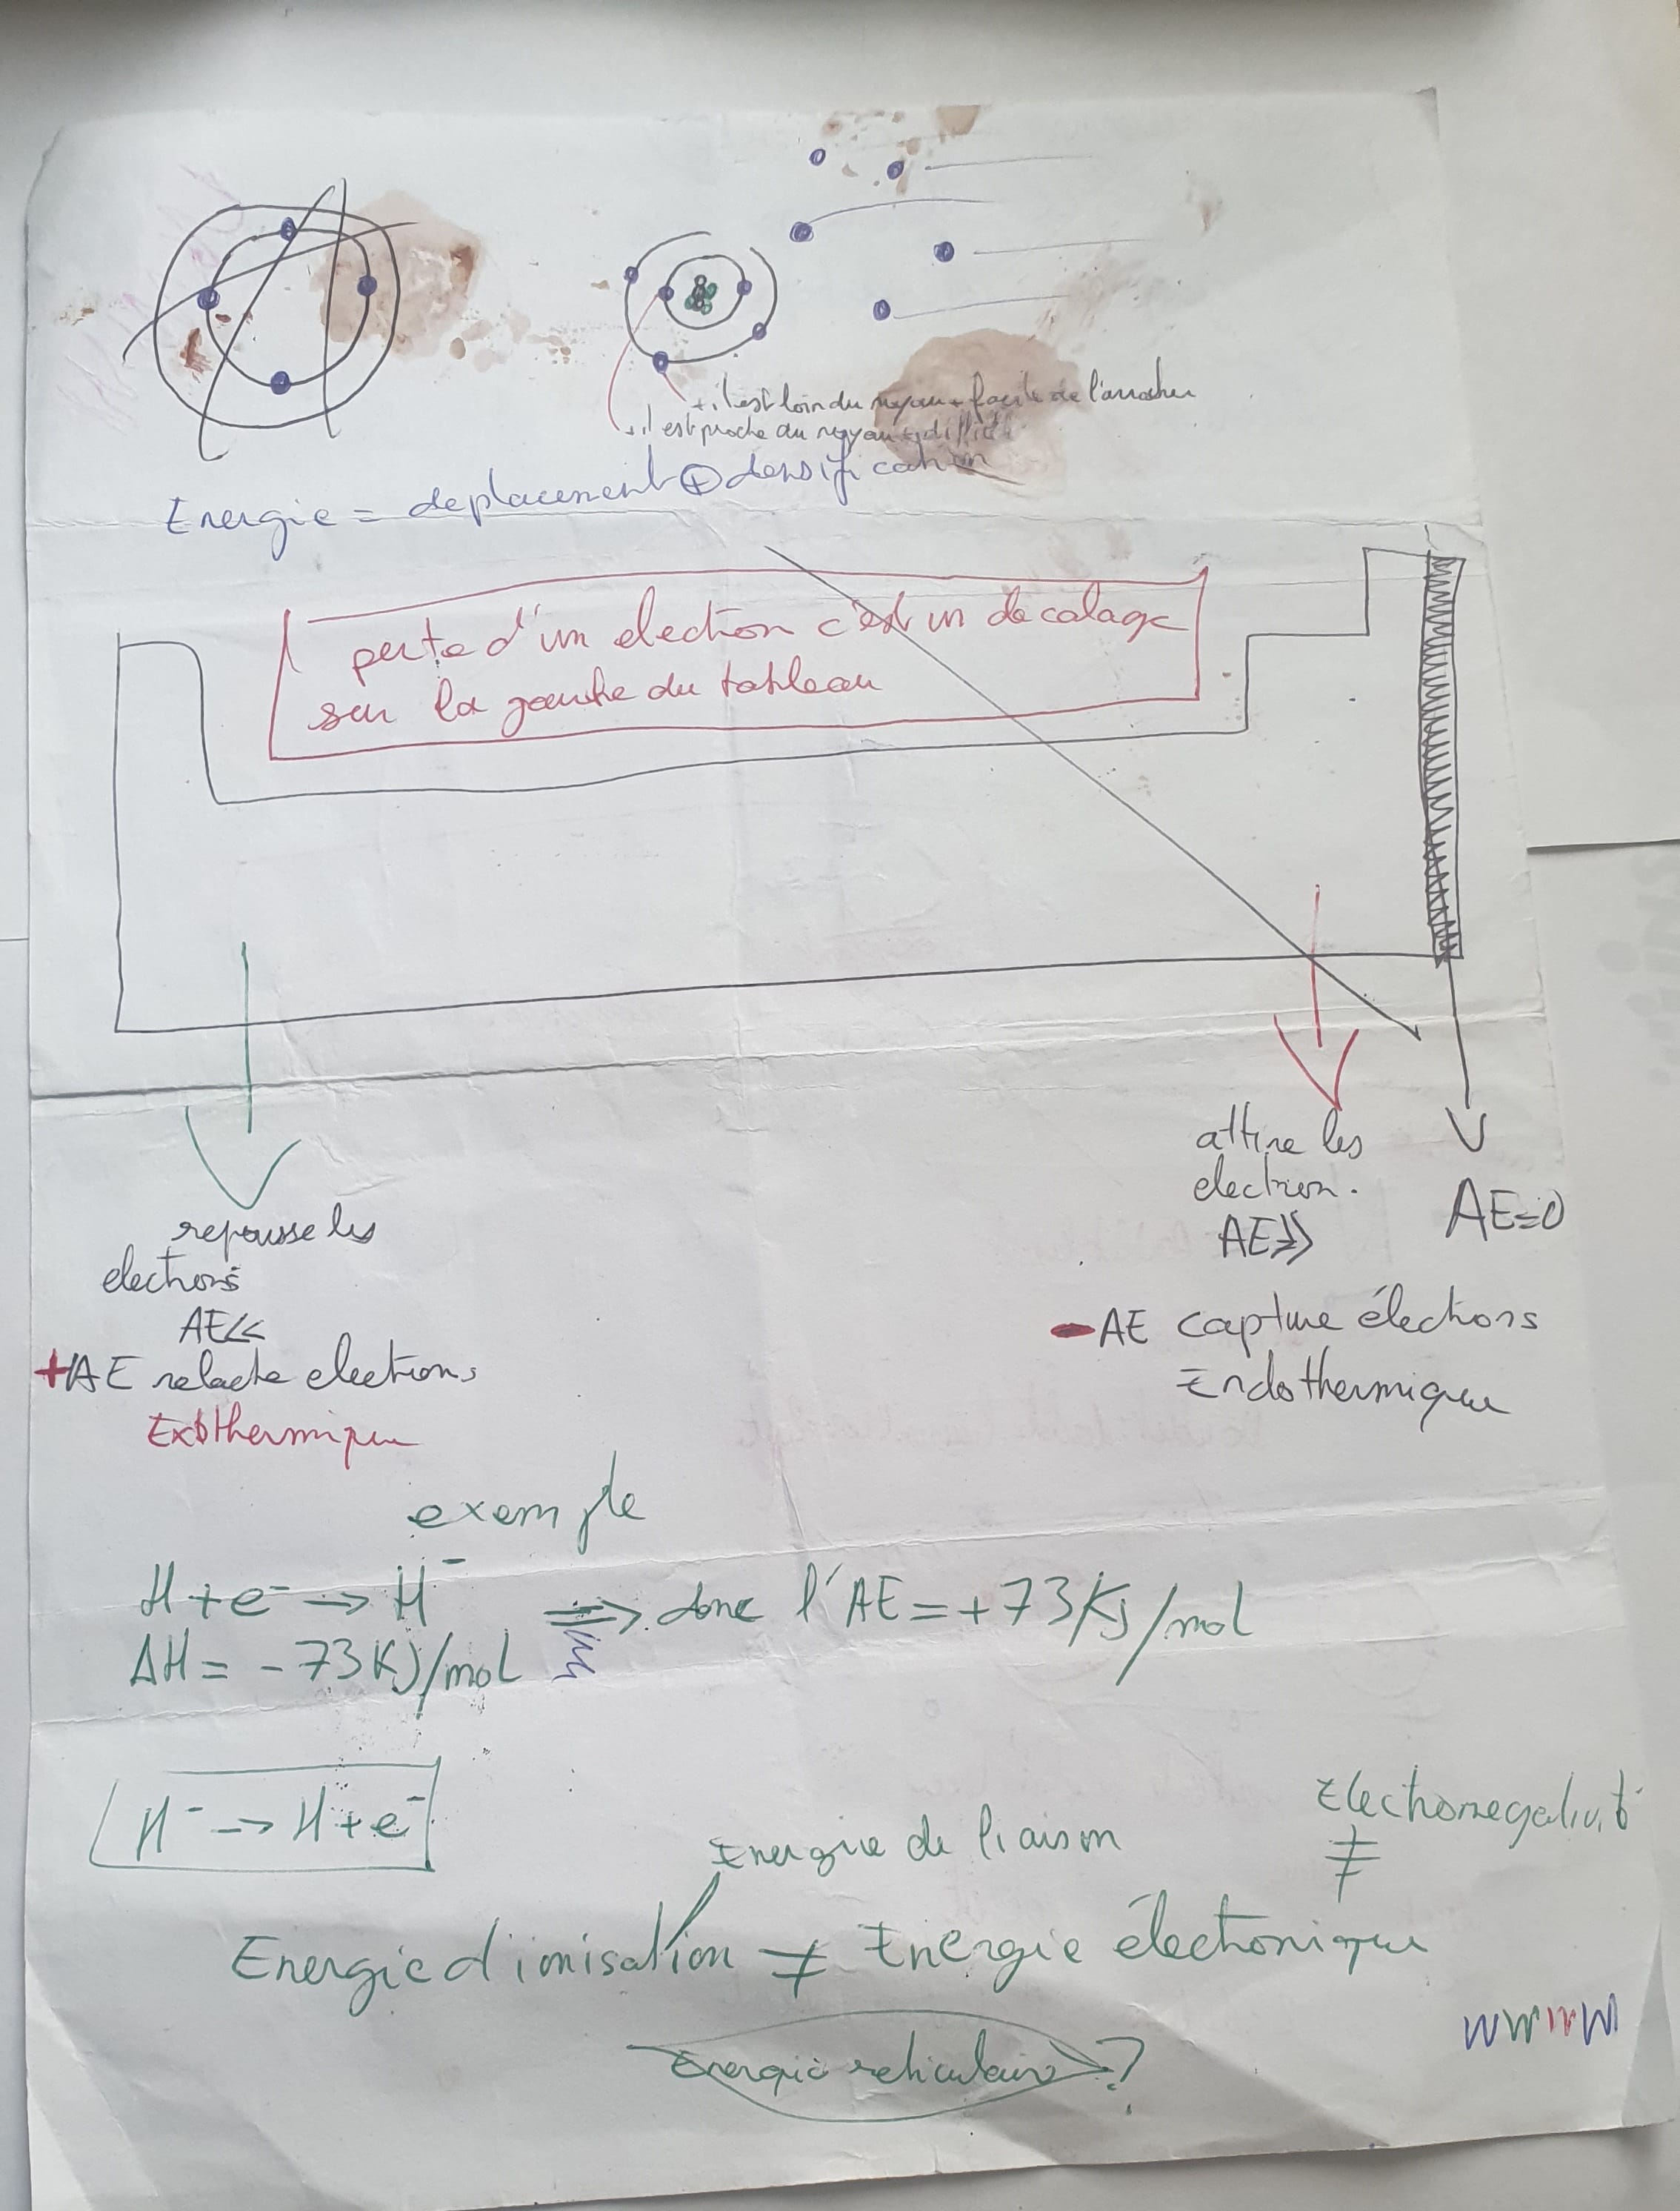 + il est loin du noyau + facile de l'arracher
+ il est proche du noyau + diffic
Energie = deplacement ⊕ densification
perte d'un electron c'est un decalage
sur la gauche du tableau
repousse les
electrons
AE<<
+AE relache electrons
Exothermique
attire les
electron.
AE>>
AE=0
-AE capture électrons
Endothermique
exemple
H + e⁻ → H⁻ ⇒ donc l'AE = +73 KJ/mol
ΔH = -73 KJ/mol
H⁻ → H + e⁻
Energie de liaison
Electronegativit
≠
Energie d'ionisation ≠ Energie électronique
Energie reticulaire ?